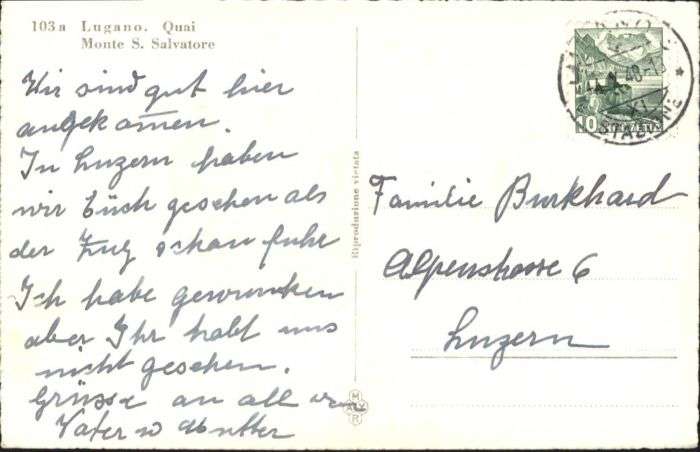 103a Lugano. Quai
Monte S. Salvatore
Wir sind gut hier
angekommen.
In Luzern haben
wir Euch gesehen als
der Zug schon fuhr
Ich habe gewunken
aber Ihr habt uns
nicht gesehen.
Grüsse an all von
Vater u Mutter
Riproduzione vietata
LUGANO
48-1
STAZIONE
10
HELVETIA
Familie Burkhard
Alpenstrasse 6
Luzern